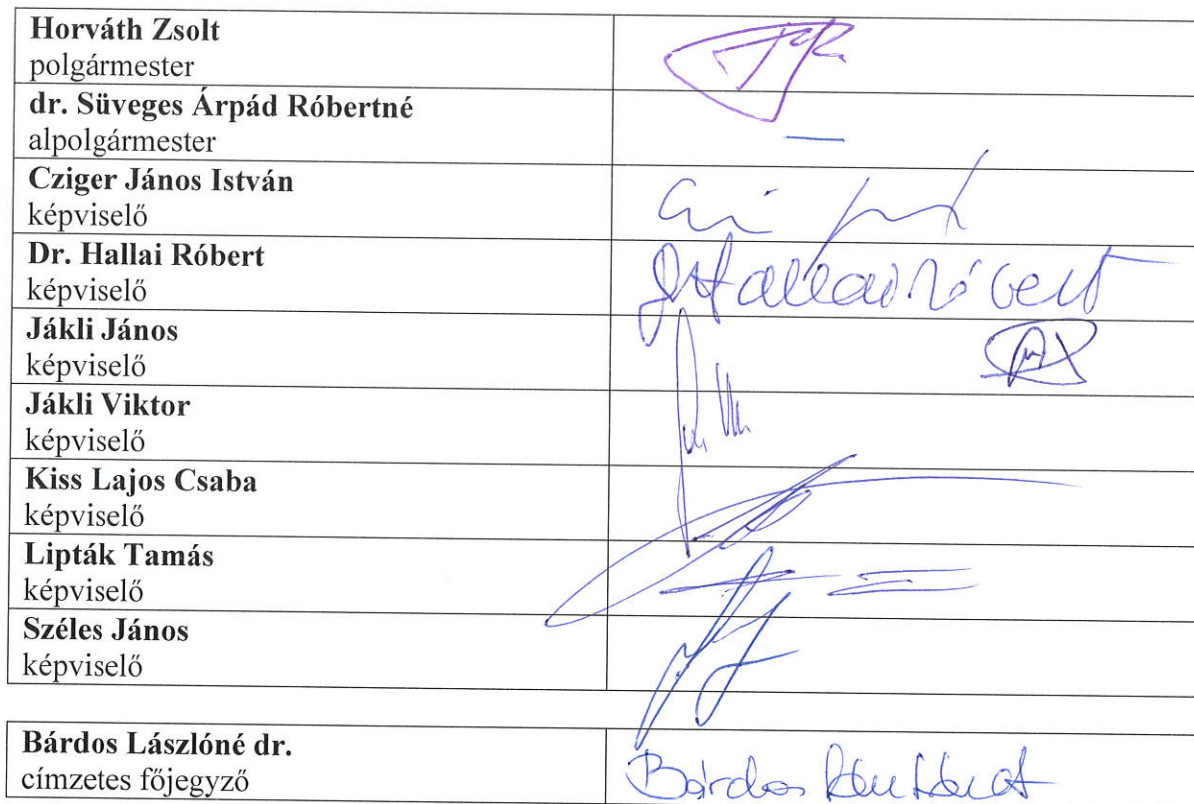 Horváth Zsolt
polgármester
dr. Süveges Árpád Róbertné
alpolgármester
—
Cziger János István
képviselő
Dr. Hallai Róbert
képviselő
Jákli János
képviselő
Jákli Viktor
képviselő
Kiss Lajos Csaba
képviselő
Lipták Tamás
képviselő
Széles János
képviselő
Bárdos Lászlóné dr.
címzetes főjegyző
Bárdos